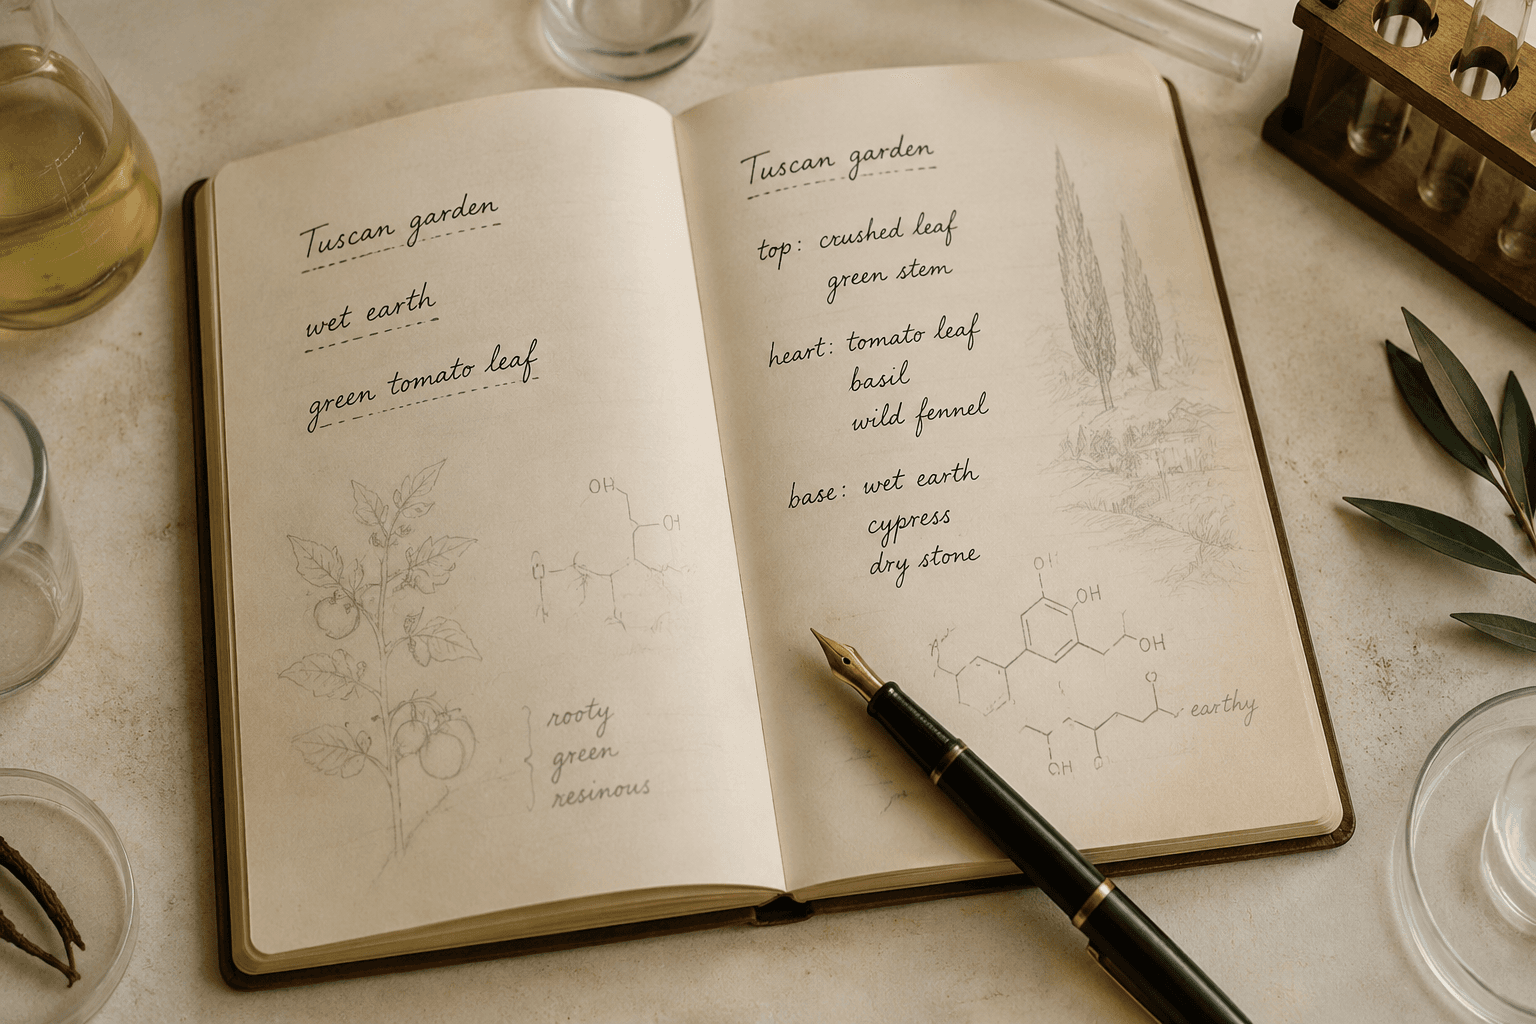 Tuscan garden
wet earth
green tomato leaf
OH
OH
rooty
green
resinous
Tuscan garden
top: crushed leaf
green stem
heart: tomato leaf
basil
wild fennel
base: wet earth
cypress
dry stone
OH
OH
earthy
OH